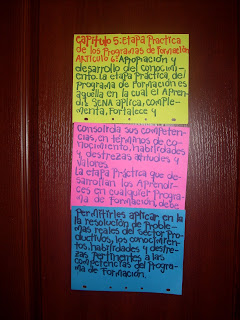 Capitulo 5: Etapa Practica
de los Programas de Formación
ARTICULO 6: Apropiación y
desarrollo del conocimien-
to. la etapa Práctica del
Programa de Formación es
aquella en la cual el Apren-
diz SENA aplica, comple-
menta, Fortalece y
Consolida sus competen-
cias, en términos de co-
nocimiento, habilidades
y destrezas actitudes y
valores
la etapa Práctica que de-
sarrollan los Aprendi-
ces en cualquier Progra-
ma de Formación, debe
Permitirles aplicar en la
la resolución de Proble-
mas reales del sector Pro-
ductivos, los conocimien-
tos, habilidades y destre-
zas Pertinentes a las
competencias del Progra-
ma de Formación.